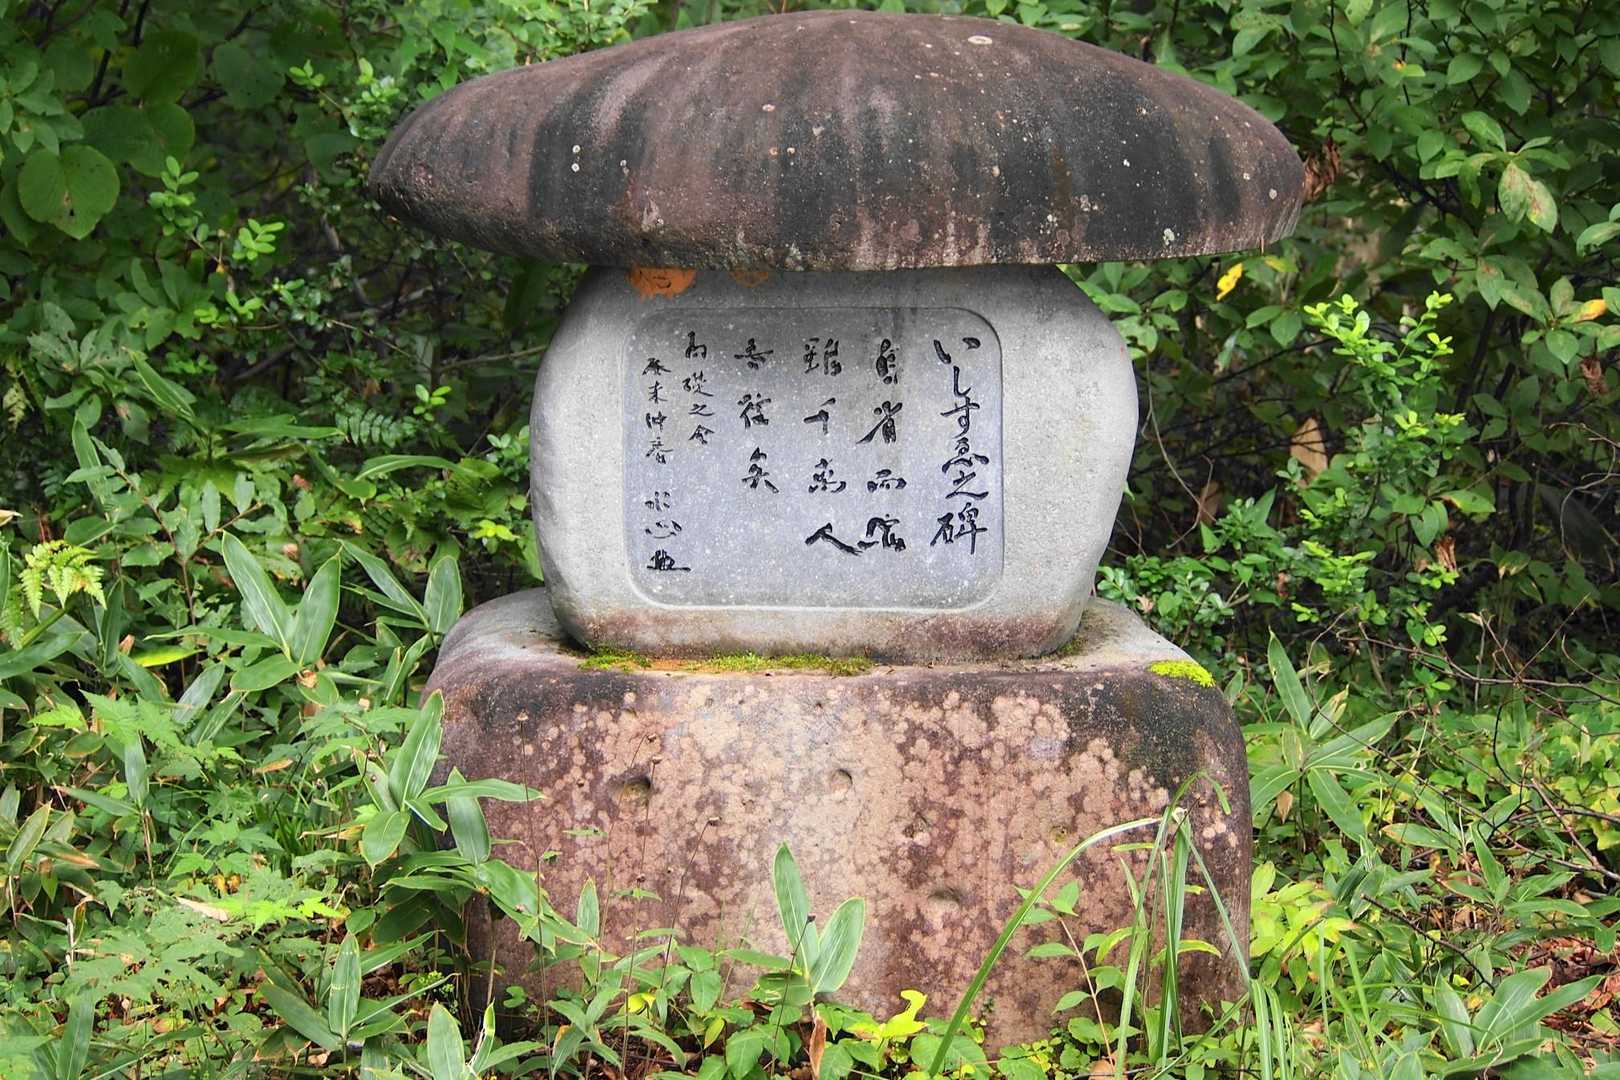 いしすゑ之碑
自省而縮
雖千萬人
吾往矣
為礎之会
癸未仲春 水心書